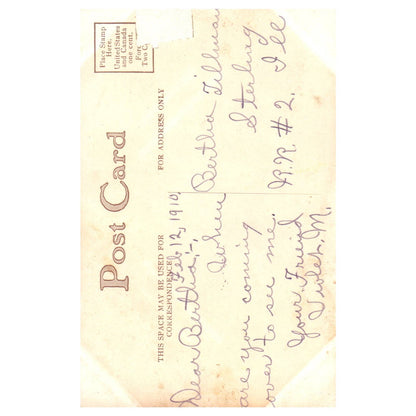 Post Card
Place Stamp
Here.
United States
and Canada
one cent.
For
Two C
THIS SPACE MAY BE USED FOR
CORRESPONDENCE
FOR ADDRESS ONLY
Feb, 12, 1910,
Dear Bertha:-
When
are you coming
over to see me.
Your Friend
Violet M.
Bertha Tillman
Sterling
R.R #2. Ill